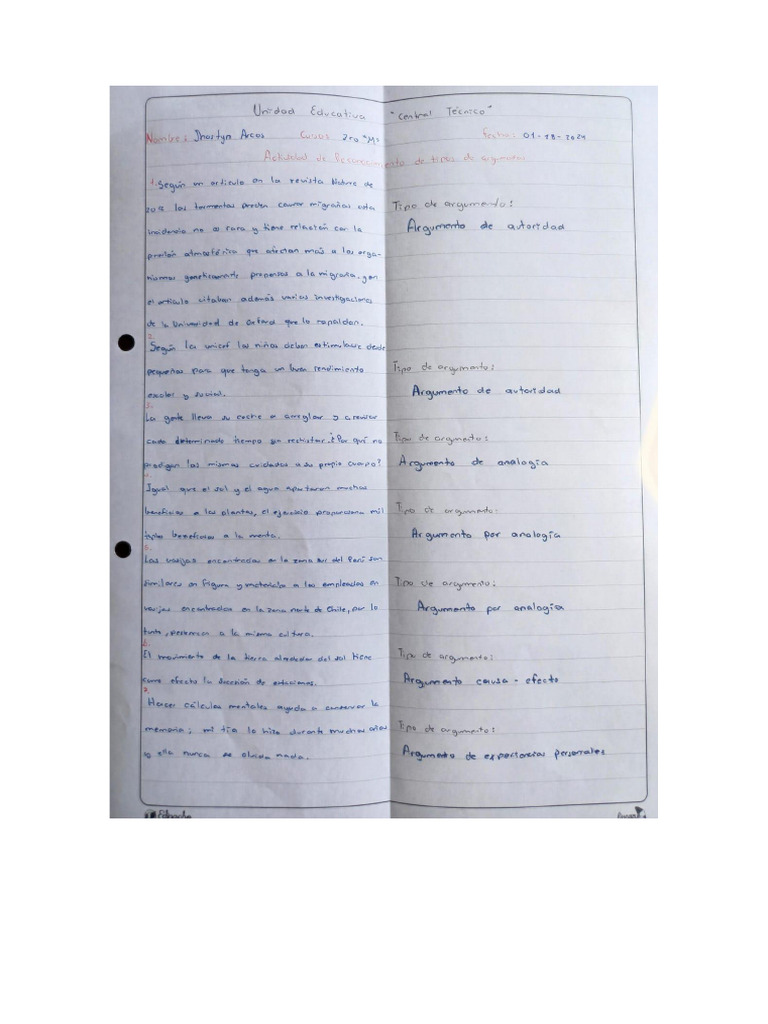 Unidad Educativa "Central Técnico"
Nombre: Jhostyn Arcos Curso: 2ro "M" Fecha: 01-18-2024
Actividad de Reconocimiento de tipos de argumentos
1. Según un articulo en la revista Nature de
las tormentas pueden causar migrañas esta
incidencia no es rara y tiene relación con la
presión atmosférica que afectan más a los orga-
nismos geneticamente propensos a la migraña, y en
el articulo citaban además varias investigaciones
de la Universidad de Oxford que lo rspaldan.
Tipo de argumento:
Argumento de autoridad
2.
Según la unicef los niños deben estimularse desde
pequeños para que tenga un buen rendimiento
escolar y social.
Tipo de argumento:
Argumento de autoridad
3.
La gente lleva su coche a arreglar y a revisar
cada determinado tiempo sin rechistar. ¿Por qué no
prodigan los mismos cuidados a su propio cuerpo?
Tipo de argumento:
Argumento de analogía
4.
Igual que el sol y el agua aportaran muchos
beneficios a las plantas, el ejercicio proporciona mil
tiples beneficios a la mente.
Tipo de argumento:
Argumento por analogía
5.
Las vasijas encontradas en la zona sur del Perú son
similares en figura y materiales a los empleados en
vasijas encontradas en la zona norte de Chile, por lo
tanto, pertenecen a la misma cultura.
Tipo de argumento:
Argumento por analogía
6.
El movimiento de la tierra alrededor del sol tiene
como efecto la de estaciones.
Tipo de argumento:
Argumento causa - efecto
7.
Hacer cálculos mentales ayuda a conservar la
memoria; mi tía lo hizo durante muchos años
y ella nunca se olvida nada.
Tipo de argumento:
Argumento de experiencias personales